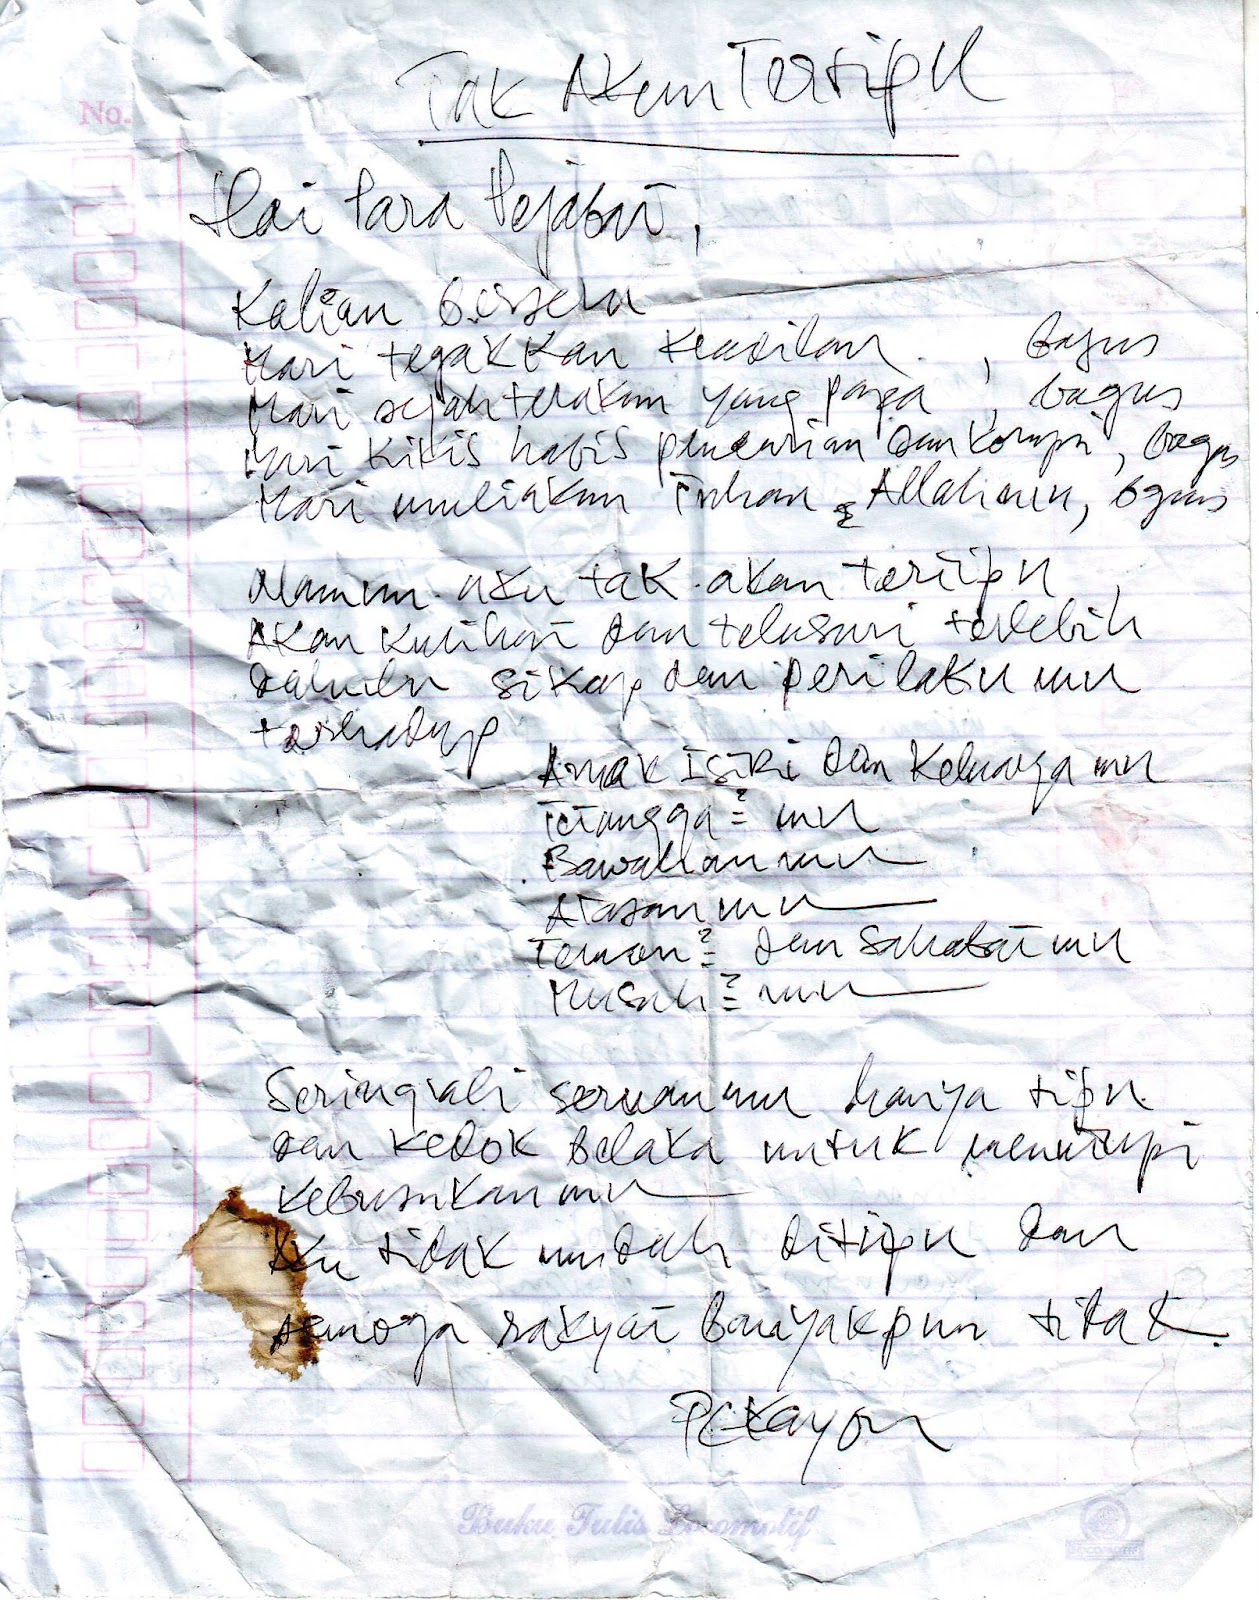 No.
Tak Akan Tertipu
Hai Para Pejabat,
Kalian berseru
Mari tegakkan keadilan , bagus
Mari sejahterakan yang papa , bagus
Mari kikis habis pencurian dan korupsi, bagus
Mari muliakan Tuhan Allahmu, bagus
Namun aku tak akan tertipu,
Akan kulihat dan telusuri terlebih
dahulu sikap dan perilakumu
terhadap
Anak istri dan keluargamu
Tetangga²mu
Bawahanmu
Atasanmu
Teman² dan sahabatmu
Musuh²mu
Seringkali seruanmu hanya tipu
dan kedok belaka untuk menutupi
kebusukanmu
Aku tidak mudah ditipu dan
semoga rakyat banyakpun tidak.
Buku Tulis Locomotif